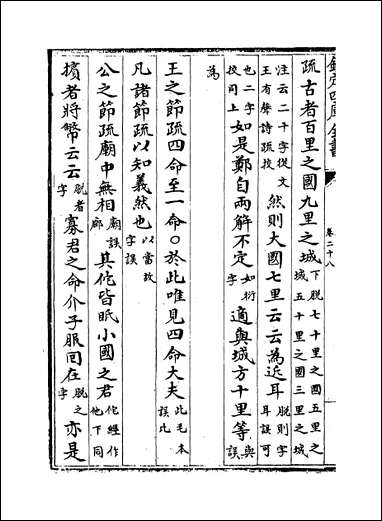 欽定四庫全書
卷二十八
疏古者百里之國九里之城下脱七十里之國五里之城五十里之國三里之城
注云二十字從文王有聲詩疏挍然則大國七里云云為近耳脱則字耳誤可
也二字挍同上如是鄭自兩解不定如衍字適與城方十里等與誤
為
王之節疏四命至一命〇於此唯見四命大夫此毛本誤比
凡諸節疏以知義然也以當故字誤
公之節疏廟中無相廟誤廊其佗皆眂小國之君佗經作他下同
擯者將幣云云脱者字寡君之命介子服回在脱之字亦是